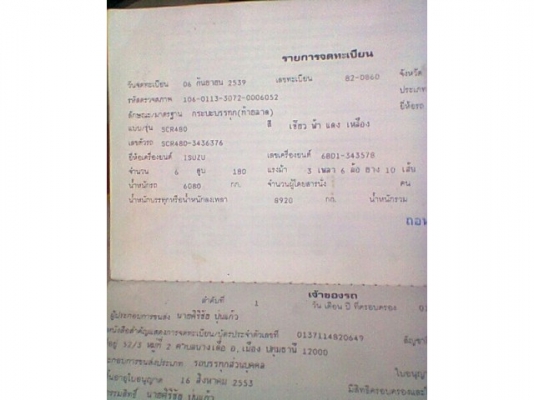 รายการจดทะเบียน
วันจดทะเบียน 06 กันยายน 2539 เลขทะเบียน 82-0860 จังหวัด
รหัสตรวจสภาพ 106-0113-3072-0006052 ประเภท
ลักษณะ/มาตรฐาน กระบะบรรทุก(ท้ายลาด) ยี่ห้อรถ
แบบ/รุ่น SCR480 สี เขียว ฟ้า แดง เหลือง
เลขตัวรถ SCR480-3436376
ยี่ห้อเครื่องยนต์ อีซูซุ เลขเครื่องยนต์ 6BD1-343578
จำนวน 6 สูบ 180 แรงม้า 3 เพลา 6 ล้อ ยาง 10 เส้น
น้ำหนักรถ 6080 กก. จำนวนผู้โดยสารนั่ง คน
น้ำหนักบรรทุกหรือน้ำหนักลงเพลา 8920 กก. น้ำหนักรวม
เจ้าของรถ
ลำดับที่ 1 วัน เดือน ปี ที่ครอบครอง
ผู้ประกอบการขนส่ง
หนังสือสำคัญแสดงการจดทะเบียน/บัตรประจำตัวเลขที่ 0137114820649 สัญชาติ
52/3 หมู่ที่ 2 ตำบลบางเดื่อ อ.เมือง ปทุมธานี 12000
ประกอบการขนส่งประเภท รถบรรทุกส่วนบุคคล ใบอนุญาต
สิ้นอายุใบอนุญาต 16 สิงหาคม 2553 มีสิทธิครอบครองและ